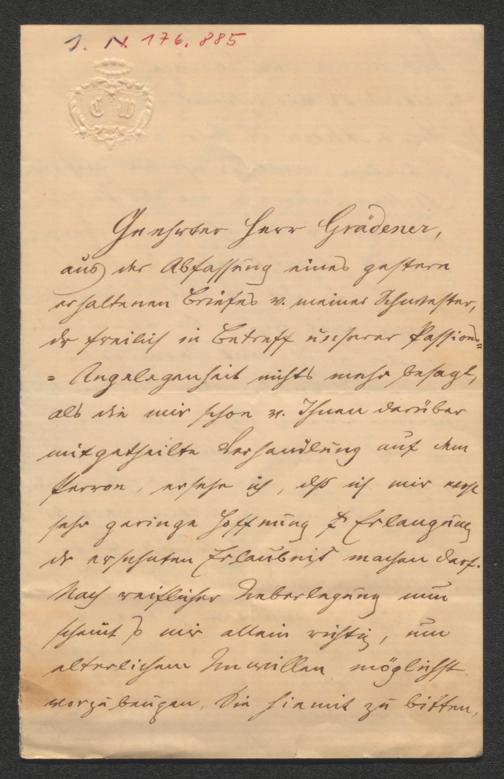 I. N. 176.885
C W
Geehrter Herr Grädener,
aus der Abfassung eines gestern
erhaltenen Briefes v. meiner Schwester,
der freilich in Betreff unserer Passions=
=Angelegenheit nichts mehr besagt,
als die mir schon v. Ihnen darüber
mitgetheilte Verhandlung auf dem
Perron, ersehe ich, dß ich mir
sehr geringe Hoffnung z. Erlangung
der ersehnten Erlaubniß machen darf.
Nach reiflicher Ueberlegung nun
scheint's mir allein richtig, um
elterlichem Unwillen möglichst
vorzubeugen, Sie hiemit zu bitten,